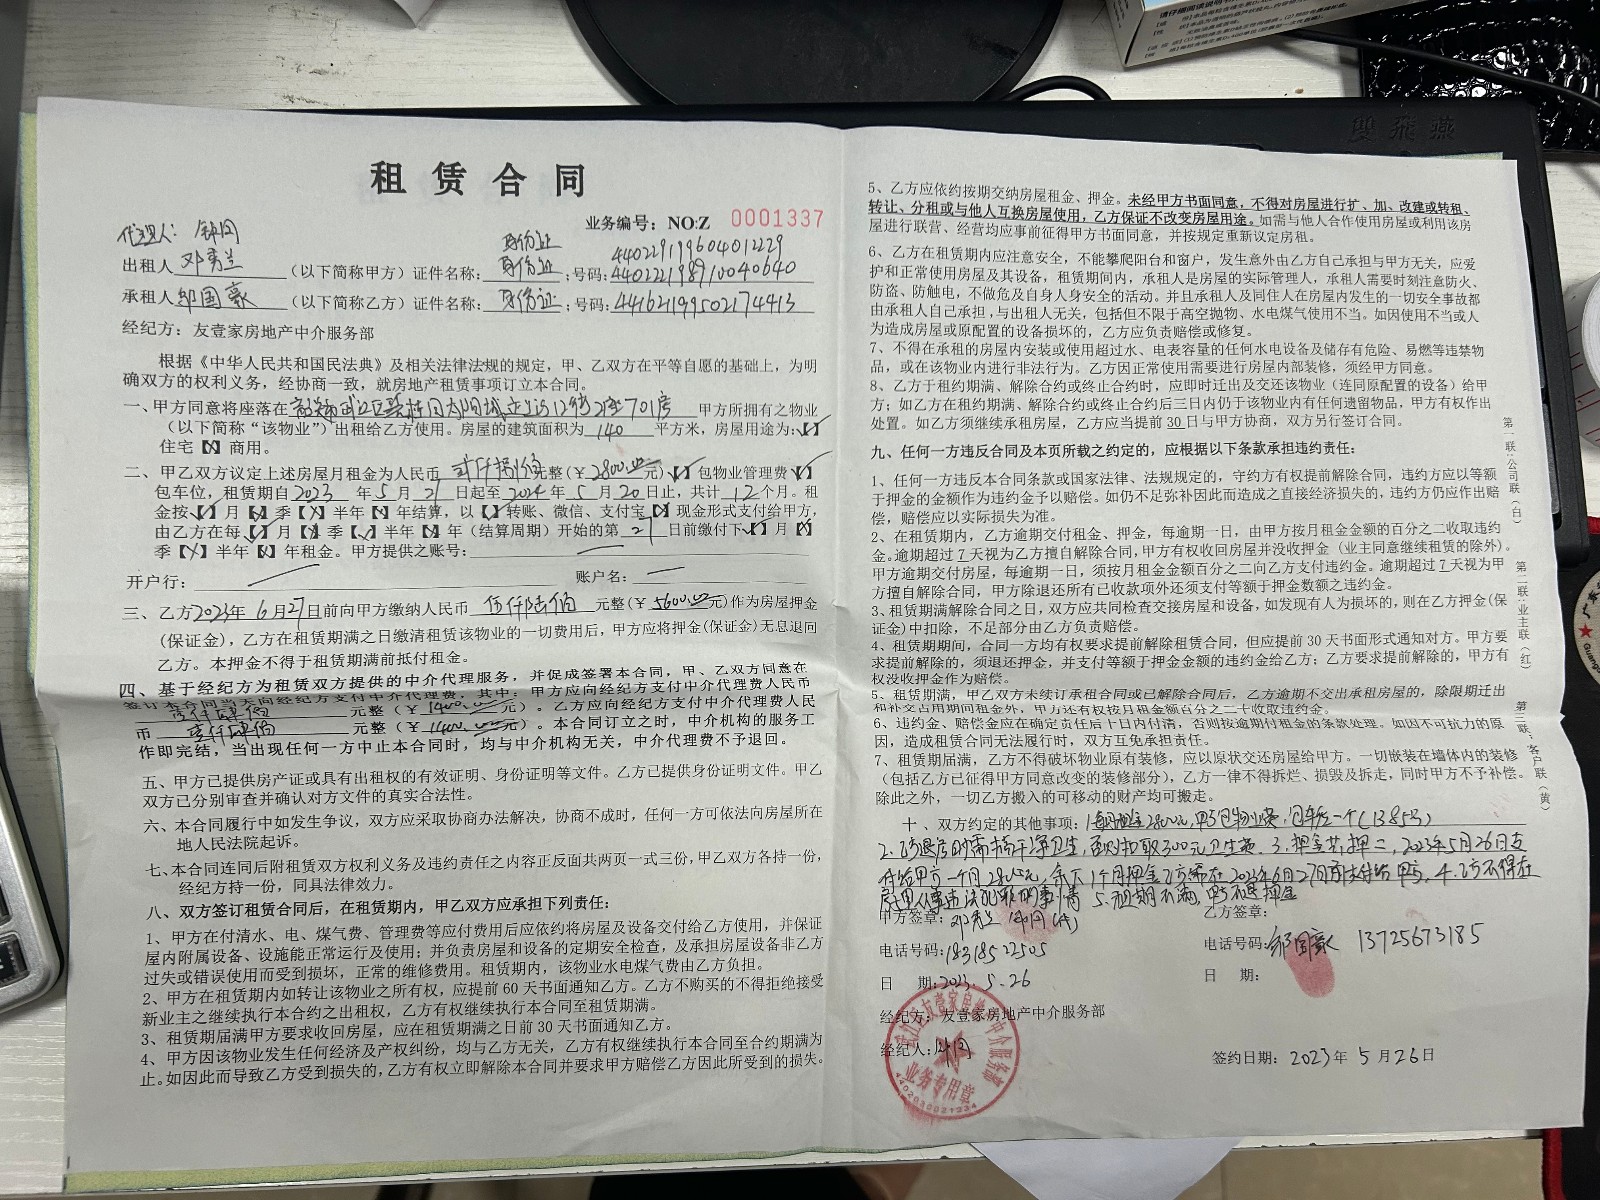 租 赁 合 同
业务编号：NO:Z 0001337
代理人：
身份证 440229199604012229
出租人 邓秀兰 （以下简称甲方）证件名称：身份证；号码：440221198910040640
承租人 邹国豪 （以下简称乙方）证件名称：身份证；号码：441621199502174413
经纪方：友壹家房地产中介服务部
根据《中华人民共和国民法典》及相关法律法规的规定，甲、乙双方在平等自愿的基础上，为明
确双方的权利义务，经协商一致，就房地产租赁事项订立本合同。
一、甲方同意将座落在 武江区 701房 甲方所拥有之物业
（以下简称“该物业”）出租给乙方使用。房屋的建筑面积为 140 平方米，房屋用途为：【✓】
住宅【X】商用。
二、甲乙双方议定上述房屋月租金为人民币 贰仟捌佰 元整（￥2800.00元）【✓】包物业管理费【✓】
包车位，租赁期自 2023 年 5 月 21 日起至 2024 年 5 月 20 日止，共计 12 个月。租
金按【✓】月【X】季【X】半年【X】年结算，以【✓】转账、微信、支付宝【X】现金形式支付给甲方，
由乙方在每【✓】月【X】季【X】半年【X】年（结算周期）开始的第 27 日前缴付下【✓】月【X】
季【X】半年【X】年租金。甲方提供之账号：
开户行： 账户名：
三、乙方2023年 6月27日前向甲方缴纳人民币 伍仟陆佰 元整（￥5600.00元）作为房屋押金
（保证金），乙方在租赁期满之日缴清租赁该物业的一切费用后，甲方应将押金（保证金）无息退回
乙方。本押金不得于租赁期满前抵付租金。
四、基于经纪方为租赁双方提供的中介代理服务，并促成签署本合同，甲、乙双方同意在
签订本合同当天向经纪方支付中介代理费，其中：甲方应向经纪方支付中介代理费人民币
壹仟肆佰 元整（￥1400.00元）。乙方应向经纪方支付中介代理费人民
币 壹仟肆佰 元整（￥1400.00元）。本合同订立之时，中介机构的服务工
作即完结，当出现任何一方中止本合同时，均与中介机构无关，中介代理费不予退回。
五、甲方已提供房产证或具有出租权的有效证明、身份证明等文件。乙方已提供身份证明文件。甲乙
双方已分别审查并确认对方文件的真实合法性。
六、本合同履行中如发生争议，双方应采取协商办法解决，协商不成时，任何一方可依法向房屋所在
地人民法院起诉。
七、本合同连同后附租赁双方权利义务及违约责任之内容正反面共两页一式三份，甲乙双方各持一份，
经纪方持一份，同具法律效力。
八、双方签订租赁合同后，在租赁期内，甲乙双方应承担下列责任：
1、甲方在付清水、电、煤气费、管理费等应付费用后应依约将房屋及设备交付给乙方使用，并保证
屋内附属设备、设施能正常运行及使用；并负责房屋和设备的定期安全检查，及承担房屋设备非乙方
过失或错误使用而受到损坏，正常的维修费用。租赁期内，该物业水电煤气费由乙方负担。
2、甲方在租赁期内如转让该物业之所有权，应提前60天书面通知乙方。乙方不购买的不得拒绝接受
新业主之继续执行本合约之出租权，乙方有权继续执行本合同至租赁期满。
3、租赁期届满甲方要求收回房屋，应在租赁期满之日前30天书面通知乙方。
4、甲方因该物业发生任何经济及产权纠纷，均与乙方无关，乙方有权继续执行本合同至合约期满为
止。如因此而导致乙方受到损失的，乙方有权立即解除本合同并要求甲方赔偿乙方因此所受到的损失。
5、乙方应依约按期交纳房屋租金、押金。未经甲方书面同意，不得对房屋进行扩、加、改建或转租、
转让、分租或与他人互换房屋使用，乙方保证不改变房屋用途。如需与他人合作使用房屋或利用该房
屋进行联营、经营均应事前征得甲方书面同意，并按规定重新议定房租。
6、乙方在租赁期内应注意安全，不能攀爬阳台和窗户，发生意外由乙方自己承担与甲方无关，应爱
护和正常使用房屋及其设备，租赁期间内，承租人是房屋的实际管理人，承租人需要时刻注意防火、
防盗、防触电，不做危及自身人身安全的活动。并且承租人及同住人在房屋内发生的一切安全事故都
由承租人自己承担，与出租人无关，包括但不限于高空抛物、水电煤气使用不当。如因使用不当或人
为造成房屋或原配置的设备损坏的，乙方应负责赔偿或修复。
7、不得在承租的房屋内安装或使用超过水、电表容量的任何水电设备及储存有危险、易燃等违禁物
品，或在该物业内进行非法行为。乙方因正常使用需要进行房屋内部装修，须经甲方同意。
8、乙方于租约期满、解除合约或终止合约时，应即时迁出及交还该物业（连同原配置的设备）给甲
方；如乙方在租约期满、解除合约或终止合约后三日内仍于该物业内有任何遗留物品，甲方有权作出
处置。如乙方须继续承租房屋，乙方应当提前30日与甲方协商，双方另行签订合同。
九、任何一方违反合同及本页所载之约定的，应根据以下条款承担违约责任：
1、任何一方违反本合同条款或国家法律、法规规定的，守约方有权提前解除合同，违约方应以等额
于押金的金额作为违约金予以赔偿。如仍不足弥补因此而造成之直接经济损失的，违约方仍应作出赔
偿，赔偿应以实际损失为准。
2、在租赁期内，乙方逾期交付租金、押金，每逾期一日，由甲方按月租金金额的百分之二收取违约
金。逾期超过7天视为乙方擅自解除合同，甲方有权收回房屋并没收押金（业主同意继续租赁的除外）。
甲方逾期交付房屋，每逾期一日，须按月租金金额百分之二向乙方支付违约金。逾期超过7天视为甲
方擅自解除合同，甲方除退还所有已收款项外还须支付等额于押金数额之违约金。
3、租赁期满解除合同之日，双方应共同检查交接房屋和设备，如发现有人为损坏的，则在乙方押金（保
证金）中扣除，不足部分由乙方负责赔偿。
4、租赁期期间，合同一方均有权要求提前解除租赁合同，但应提前30天书面形式通知对方。甲方要
求提前解除的，须退还押金，并支付等额于押金金额的违约金给乙方；乙方要求提前解除的，甲方有
权没收押金作为赔偿。
5、租赁期满，甲乙双方未续订承租合同或已解除合同后，乙方逾期不交出承租房屋的，除限期迁出
和补交占用期间租金外，甲方还有权按月租金额百分之二十收取违约金。
6、违约金、赔偿金应在确定责任后十日内付清，否则按逾期付租金的条款处理。如因不可抗力的原
因，造成租赁合同无法履行时，双方互免承担责任。
7、租赁期届满，乙方不得破坏物业原有装修，应以原状交还房屋给甲方。一切嵌装在墙体内的装修
（包括乙方已征得甲方同意改变的装修部分），乙方一律不得拆烂、损毁及拆走，同时甲方不予补偿。
除此之外，一切乙方搬入的可移动的财产均可搬走。
十、双方约定的其他事项：1.每月租金2800元，甲方包物业费，包车位一个（138号）
2.乙方退房时需搞干净卫生，否则扣取300元卫生费。3.押金共押二，2023年5月26日支
付给甲方一个月2800元，余下1个月押金乙方需在2023年6月27日前支付给甲方，4.乙方不得在
房屋从事违法犯罪的事情 5.租期不满，甲方不退押金
甲方签章：邓秀兰 （代） 乙方签章：
电话号码：18318522505 电话号码：邹国豪 13725673185
日 期：2023.5.26 日 期：
经纪方：友壹家房地产中介服务部
经纪人：
签约日期：2023年 5月26日
武江区友壹家房地产中介服务部
业务专用章
4402030021234
第一联：公司联（白）
第二联：业主联（红）
第三联：客户联（黄）
雙飛燕